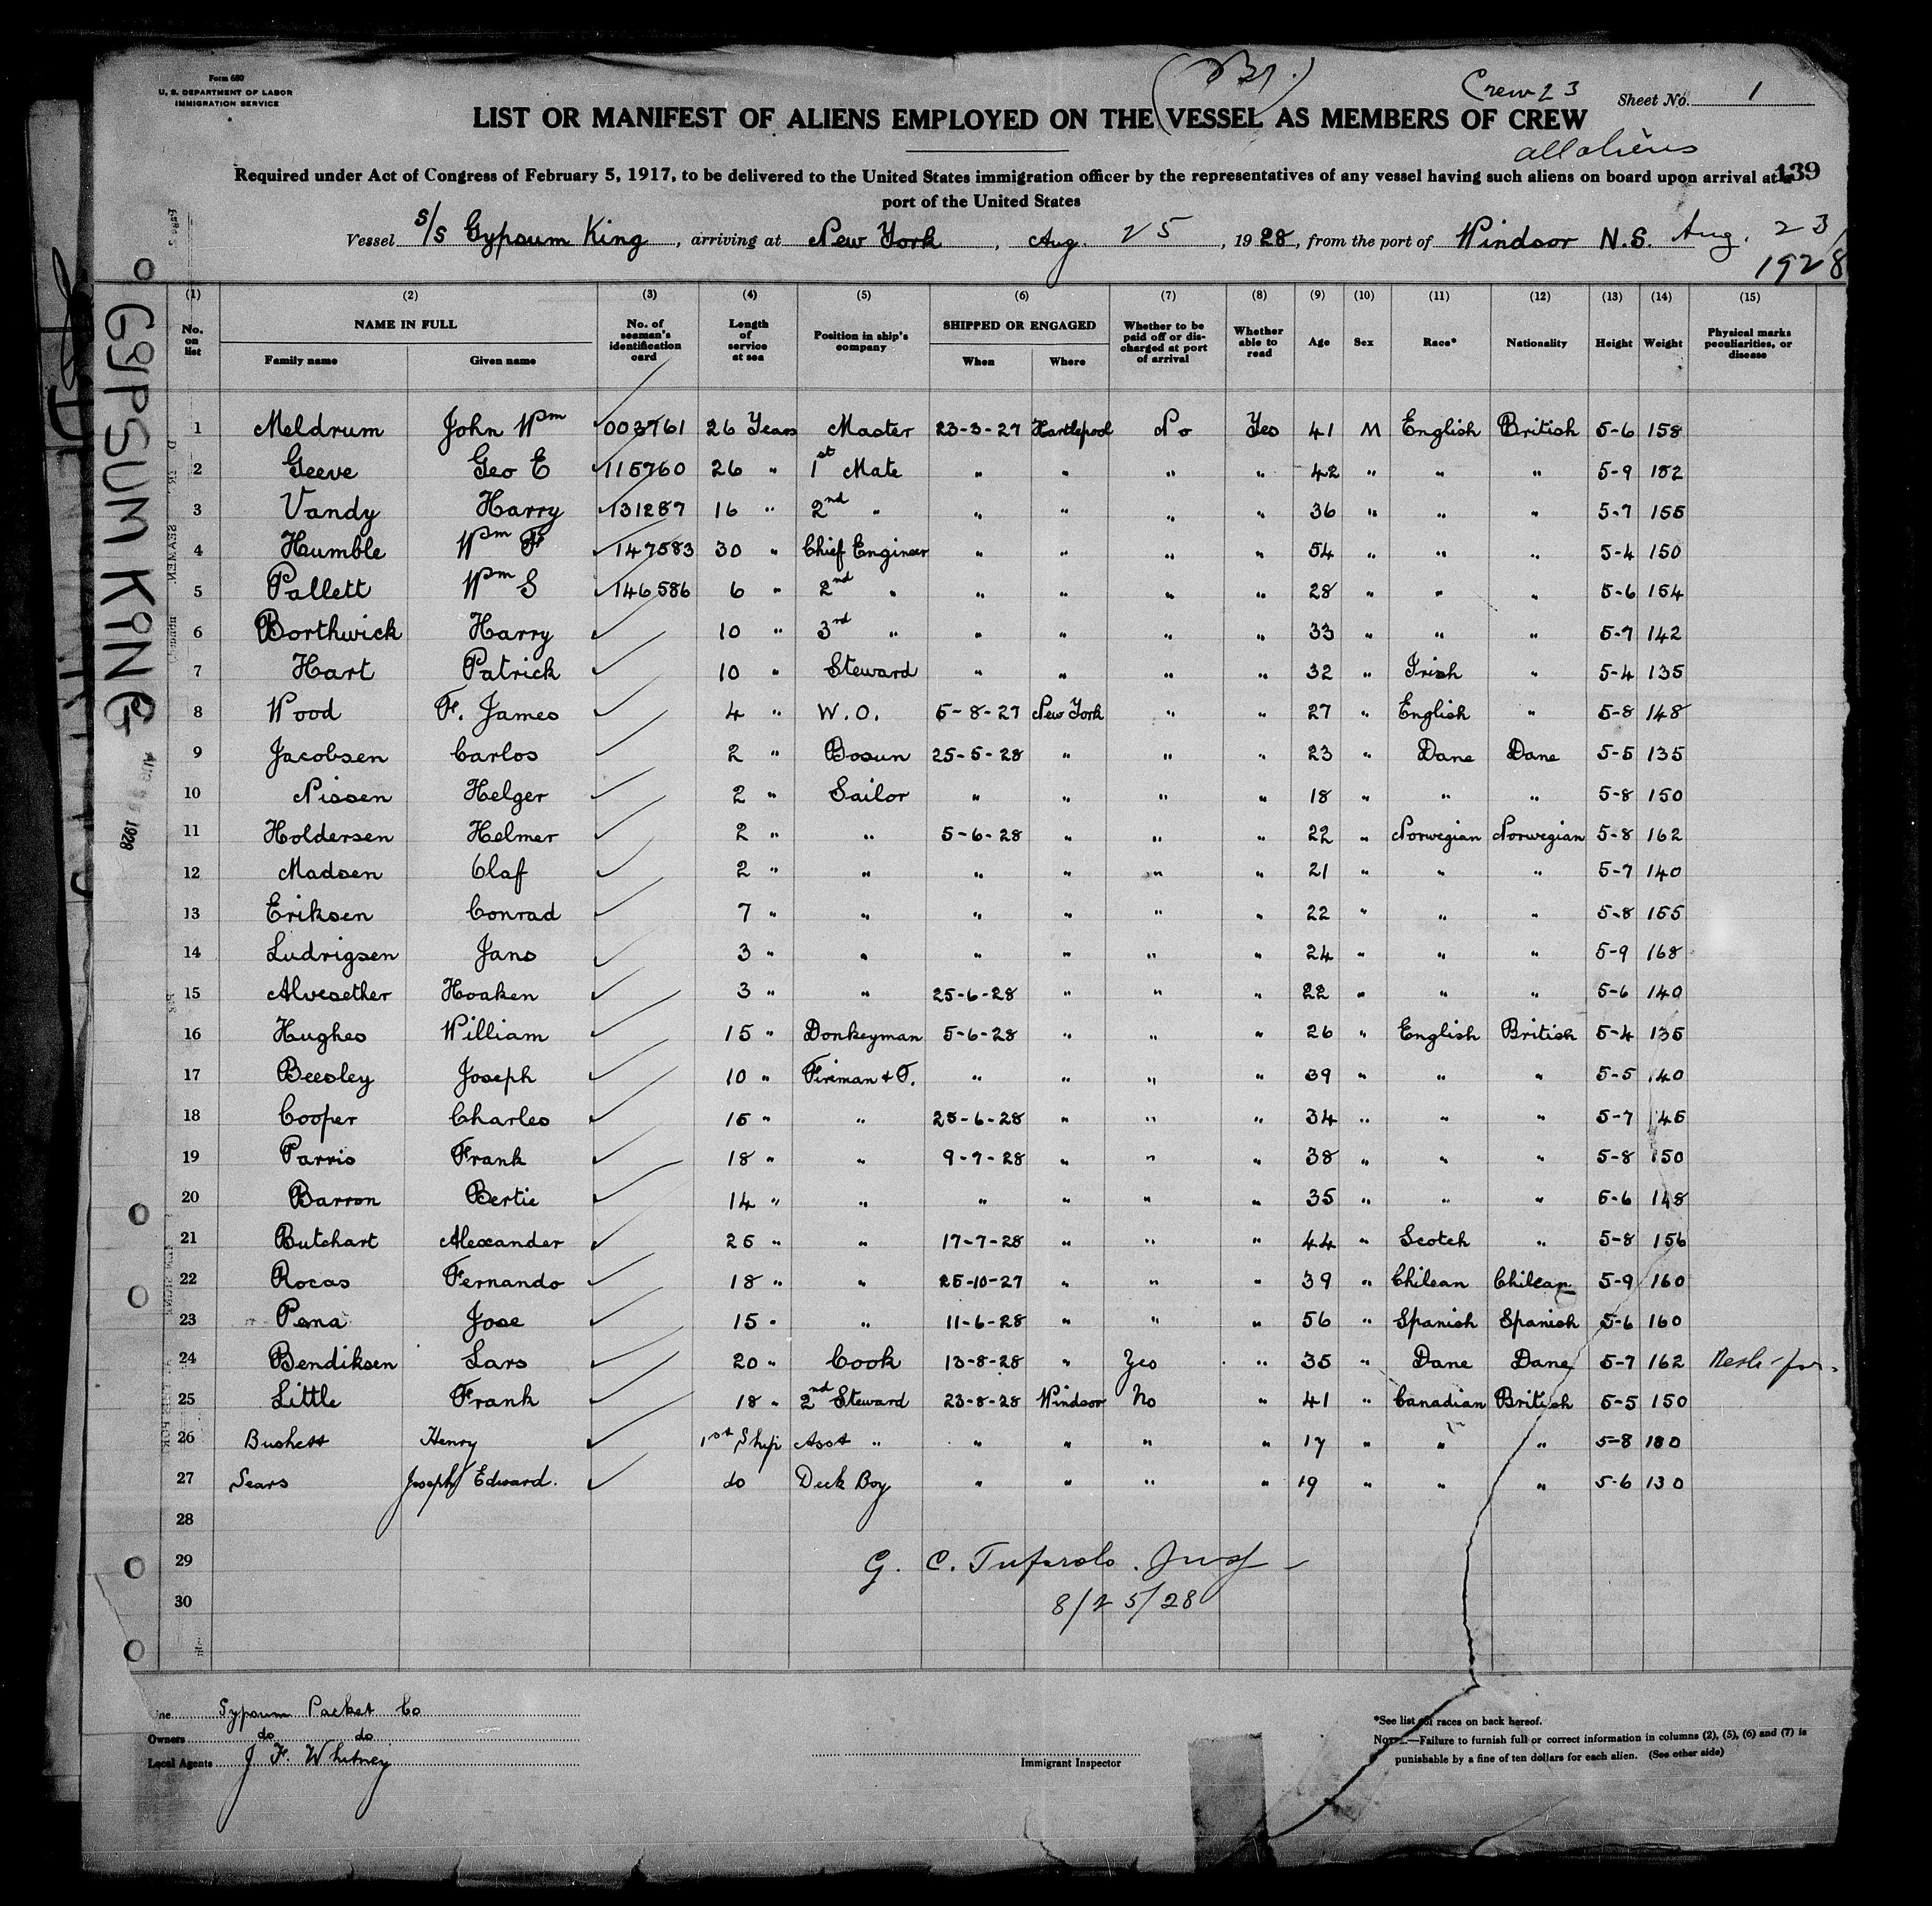 Form 680
U. S. DEPARTMENT OF LABOR
IMMIGRATION SERVICE
(Br.)
Crew 23
Sheet No. 1
LIST OR MANIFEST OF ALIENS EMPLOYED ON THE VESSEL AS MEMBERS OF CREW
all aliens
139
Required under Act of Congress of February 5, 1917, to be delivered to the United States immigration officer by the representatives of any vessel having such aliens on board upon arrival at a
port of the United States
Vessel S/S Gypsum King, arriving at New York, Aug. 25, 1928, from the port of Windsor N.S. Aug. 23, 1928
GYPSUM KING
(1) (2) (3) (4) (5) (6) (7) (8) (9) (10) (11) (12) (13) (14) (15)
No. on list NAME IN FULL Family name Given name No. of seaman's identification card Length of service at sea Position in ship's company SHIPPED OR ENGAGED When Where Whether to be paid off or discharged at port of arrival Whether able to read Age Sex Race* Nationality Height Weight Physical marks peculiarities, or disease
1 Meldrum John Wm 003761 26 Years Master 23-3-27 Hartlepool No Yes 41 M English British 5-6 158
2 Geeve Geo E 115760 26 " 1st Mate " " " " 42 " " " 5-9 182
3 Vandy Harry 131287 16 " 2nd " " " " " 36 " " " 5-7 155
4 Humble Wm F 147583 30 " Chief Engineer " " " " 54 " " " 5-4 150
5 Pallett Wm S 146586 6 " 2nd " " " " " 28 " " " 5-6 154
6 Borthwick Harry 10 " 3rd " " " " " 33 " " " 5-7 142
7 Hart Patrick 10 " Steward " " " " 32 " Irish " 5-4 135
8 Wood F. James 4 " W.O. 5-8-27 New York " " 27 " English " 5-8 148
9 Jacobsen Carlos 2 " Bosun 25-5-28 " " " 23 " Dane Dane 5-5 135
10 Nissen Helger 2 " Sailor " " " " 18 " " " 5-8 150
11 Holdersen Helmer 2 " " 5-6-28 " " " 22 " Norwegian Norwegian 5-8 162
12 Madsen Olaf 2 " " " " " " 21 " " " 5-7 140
13 Eriksen Conrad 7 " " " " " " 22 " " " 5-8 155
14 Ludrigsen Jans 3 " " " " " " 24 " " " 5-9 168
15 Alvesether Hoaken 3 " " 25-6-28 " " " 22 " " " 5-6 140
16 Hughes William 15 " Donkeyman 5-6-28 " " " 26 " English British 5-4 135
17 Beesley Joseph 10 " Fireman & T. " " " " 39 " " " 5-5 140
18 Cooper Charles 15 " " 25-6-28 " " " 34 " " " 5-7 145
19 Parris Frank 18 " " 9-7-28 " " " 38 " " " 5-8 150
20 Barron Bertie 14 " " " " " " 35 " " " 5-6 148
21 Butchart Alexander 25 " " 17-7-28 " " " 44 " Scotch " 5-8 156
22 Rocas Fernando 18 " " 25-10-27 " " " 39 " Chilean Chilean 5-9 160
23 Pena Jose 15 " " 11-6-28 " " " 56 " Spanish Spanish 5-6 160
24 Bendiksen Lars 20 " Cook 13-8-28 " Yes " 35 " Dane Dane 5-7 162
25 Little Frank 18 " 2nd Steward 23-8-28 Windsor No " 41 " Canadian British 5-5 150
26 Bushett Henry 1st Ship Asst " " " " " 17 " " " 5-8 180
27 Sears Joseph Edward. do Deck Boy " " " " 19 " " " 5-6 130
28
29
30
G. C.
8/25/28
Gypsum Packet Co
Owners do do
Local Agents J. F. Whitney
Immigrant Inspector
*See list of races on back hereof.
NOTE.—Failure to furnish full or correct information in columns (2), (5), (6) and (7) is
punishable by a fine of ten dollars for each alien. (See other side)